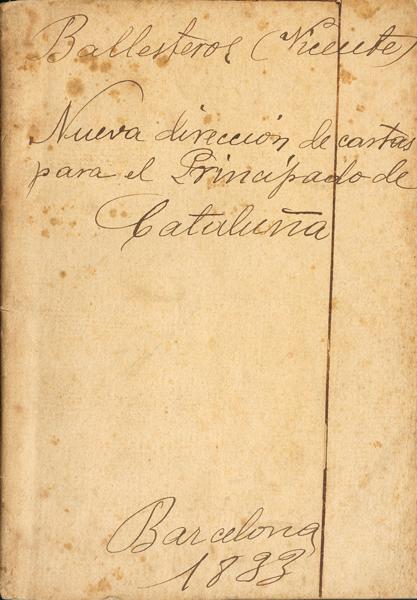 Ballesteros (Vicente)
Nueva dirección de cartas
para el Principado de
Cataluña
Barcelona
1833